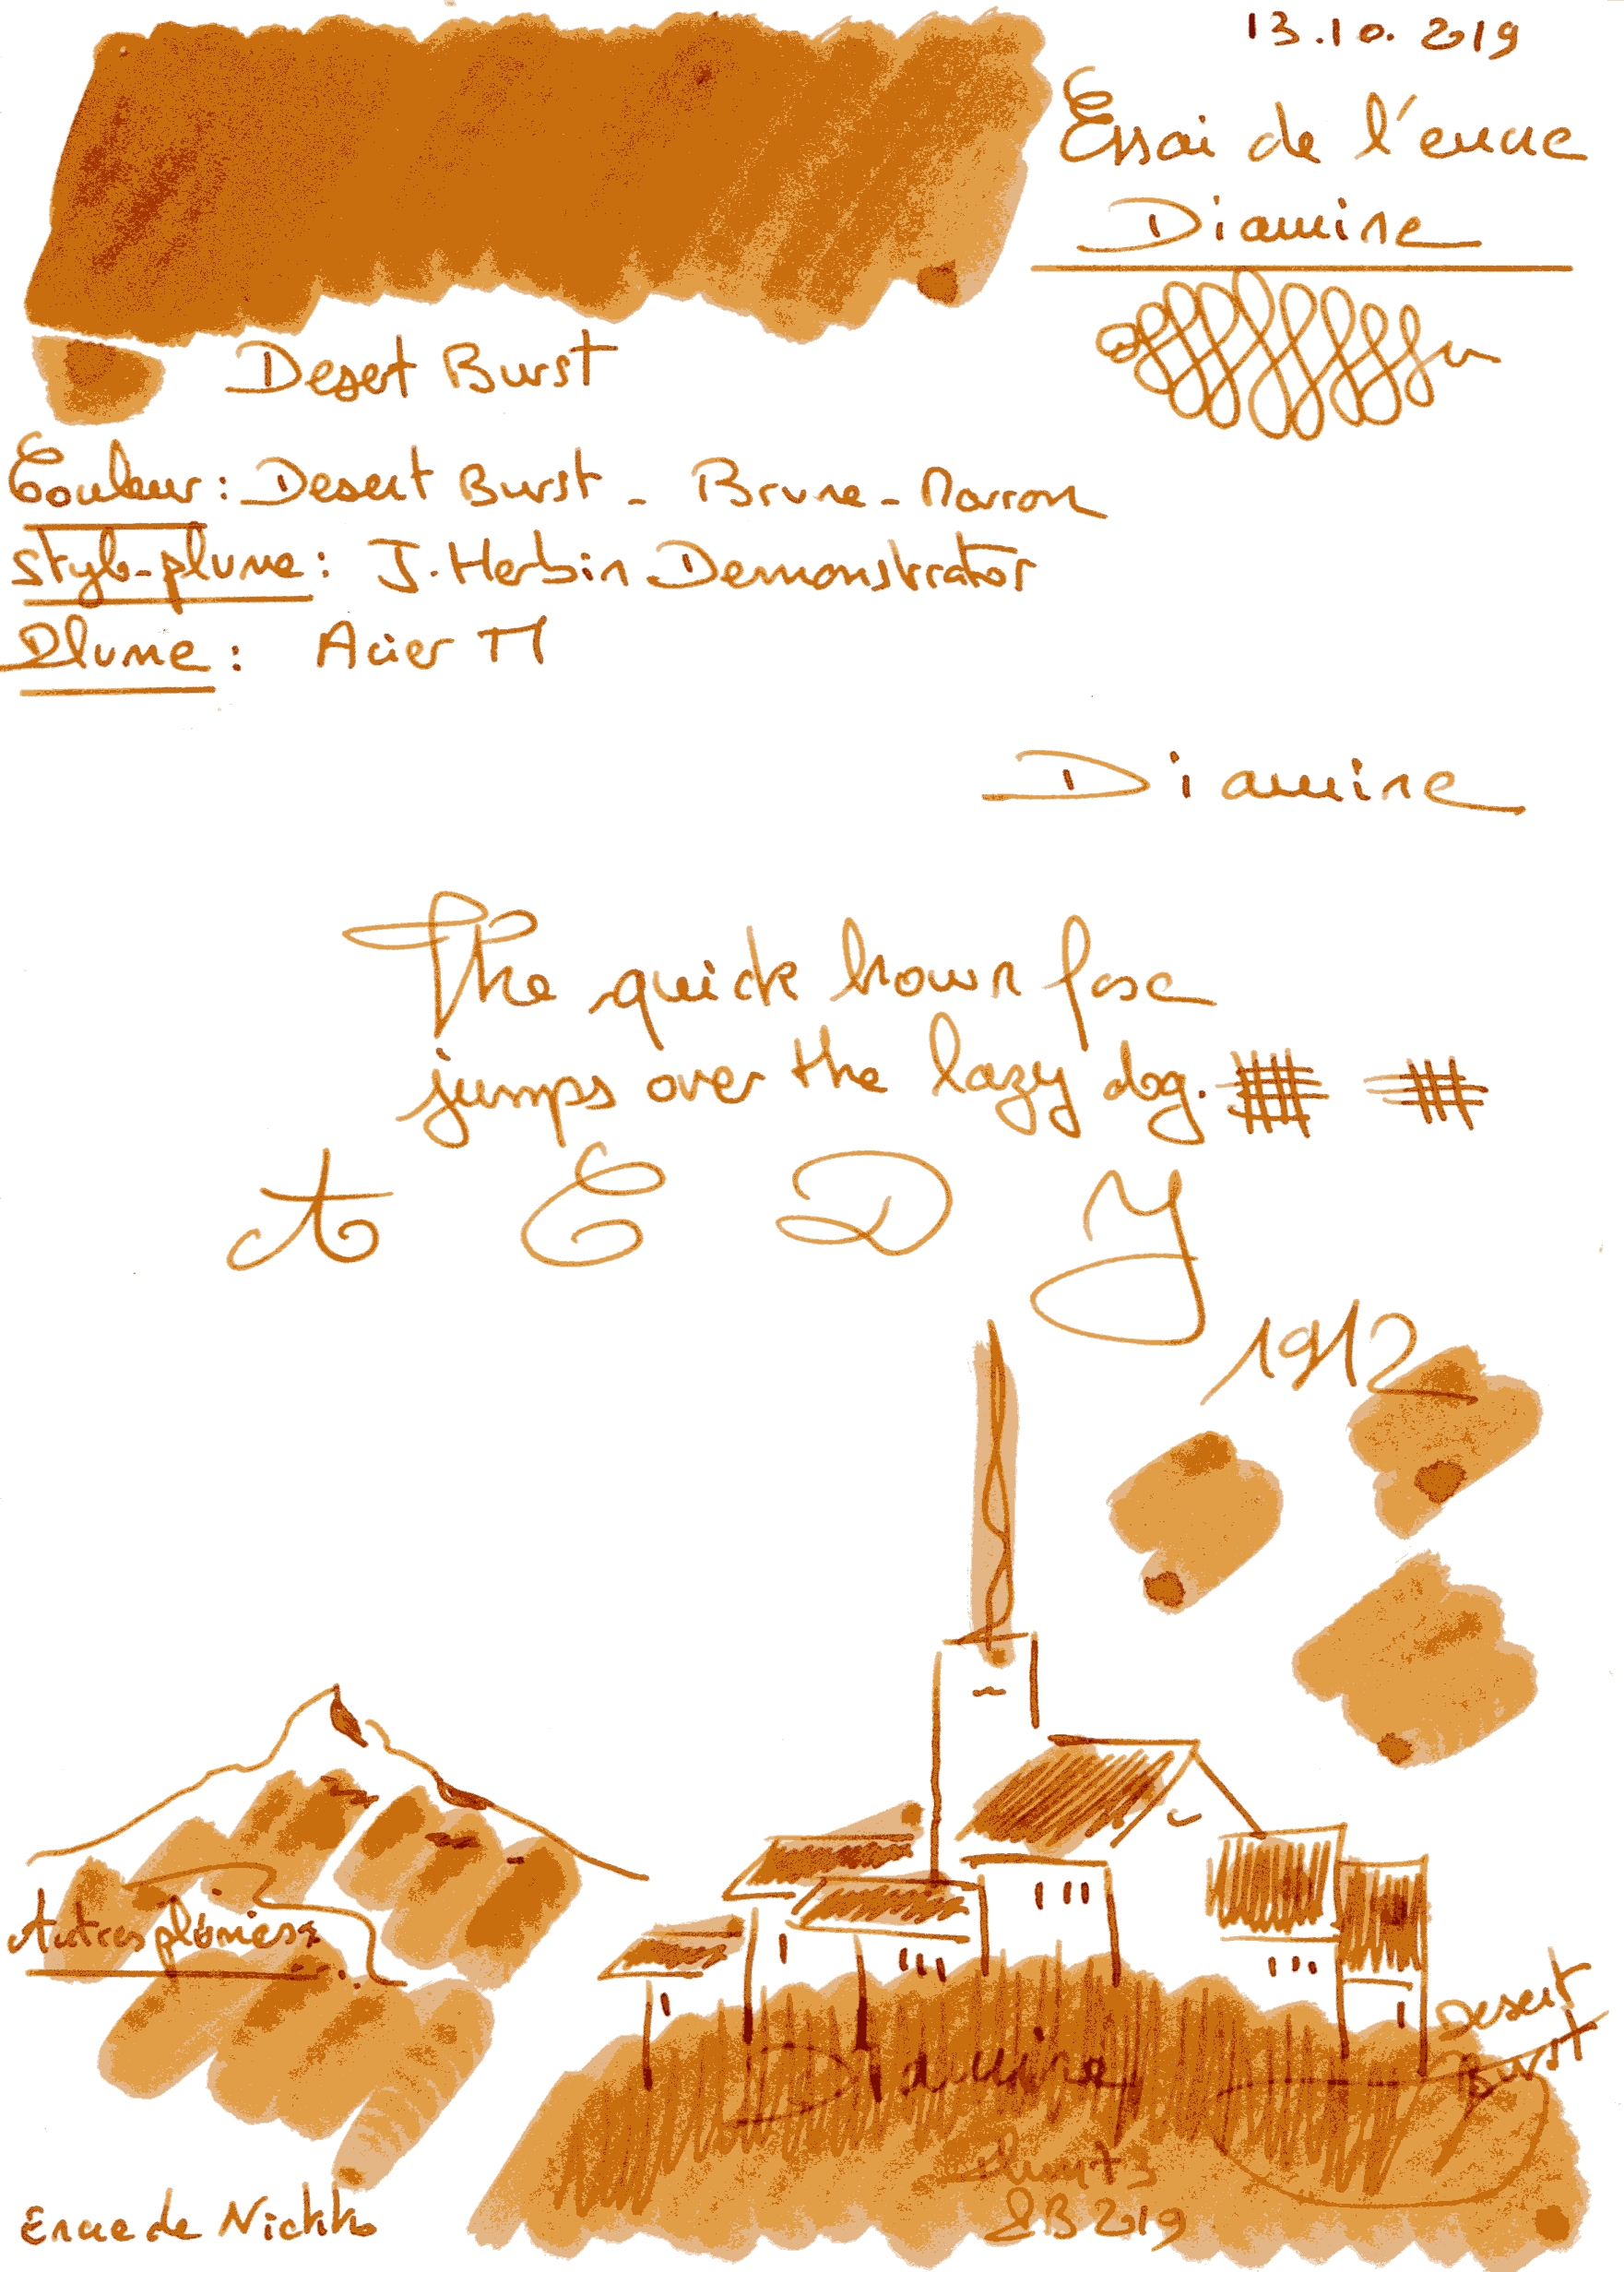 13.10.2019
Essai de l'encre
Diamine
Desert Burst
Couleur : Desert Burst - Brune - Marron
Stylo-plume : J. Herbin Demonstrator
Plume : Acier M
Diamine
The quick brown fox
jumps over the lazy dog.
A E D Y
1912
Autres plumes :
Desert
Burst
Diamine
2019
Encre de Nickko